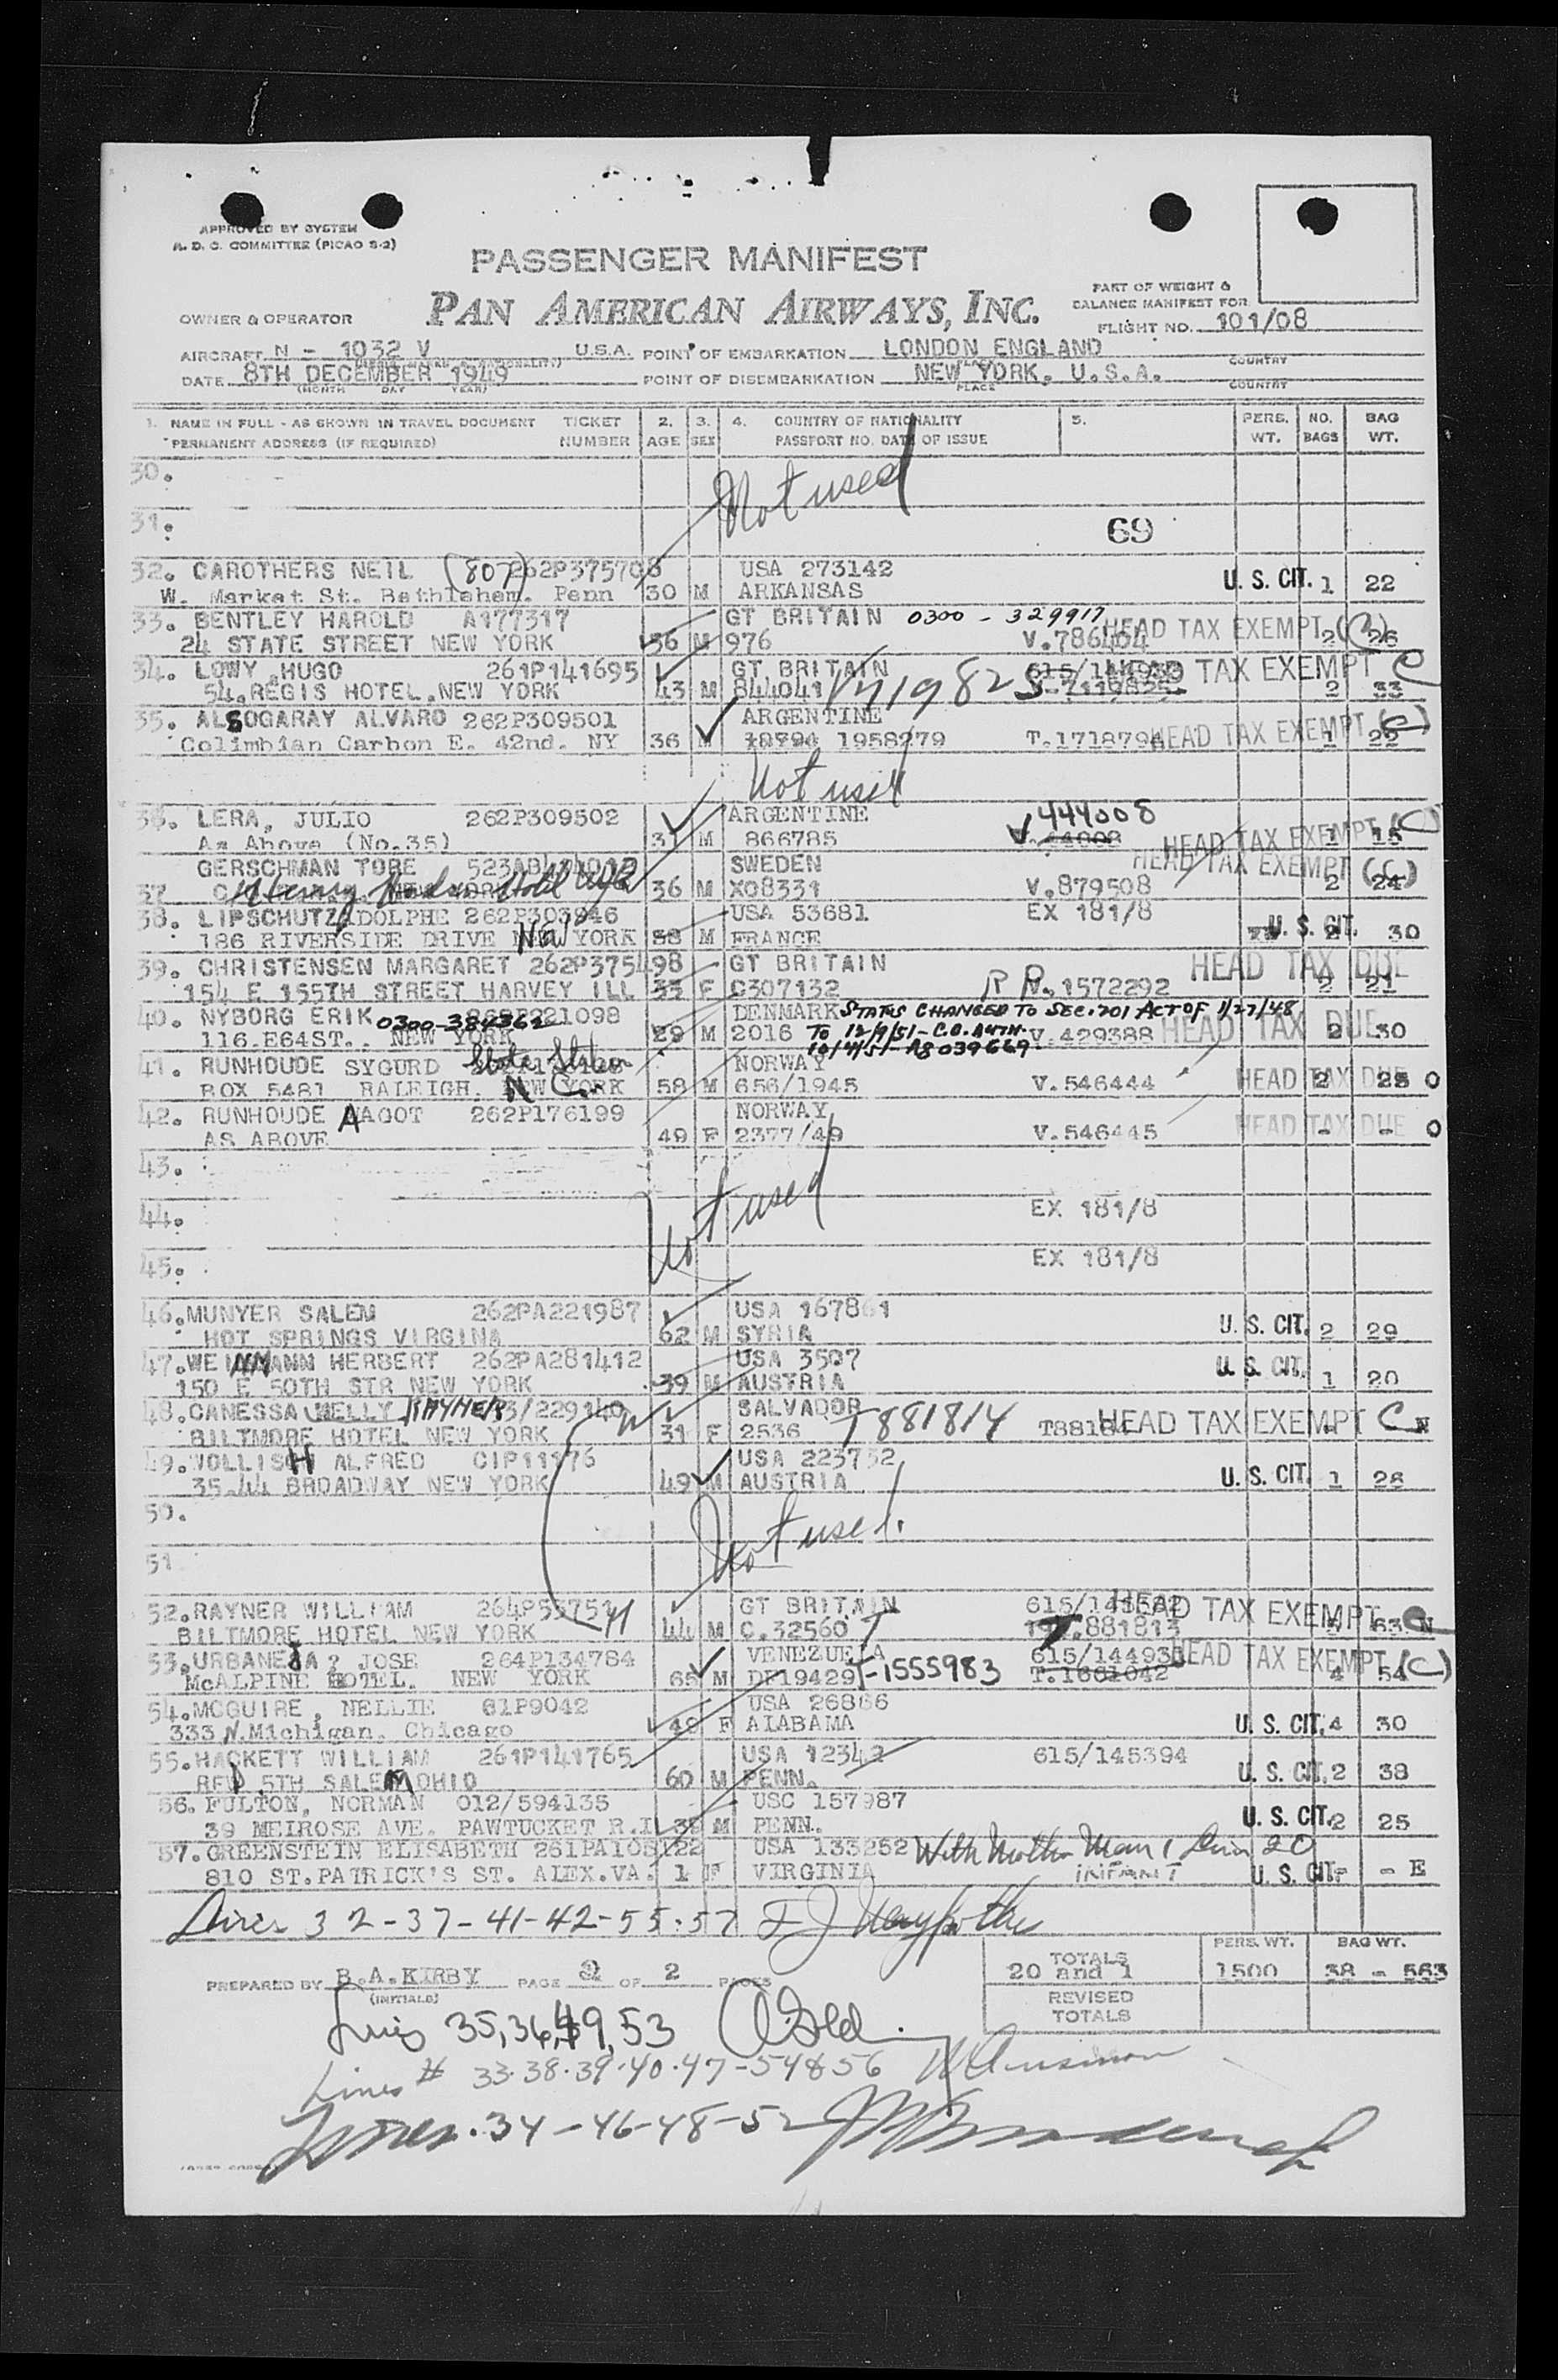 APPROVED BY SYSTEM
A. D. C. COMMITTEE (PICAO S-2)
PASSENGER MANIFEST
PAN AMERICAN AIRWAYS, INC.
PART OF WEIGHT &
BALANCE MANIFEST FOR
OWNER & OPERATOR
FLIGHT NO. 101/08
AIRCRAFT N - 1032 V U.S.A. POINT OF EMBARKATION LONDON ENGLAND COUNTRY
DATE 8TH DECEMBER 1949 POINT OF DISEMBARKATION NEW YORK, U.S.A.
(MONTH DAY YEAR) PLACE COUNTRY
1. NAME IN FULL - AS SHOWN IN TRAVEL DOCUMENT TICKET 2. 3. 4. COUNTRY OF NATIONALITY 5. PERS. NO. BAG
PERMANENT ADDRESS (IF REQUIRED) NUMBER AGE SEX PASSPORT NO. DATE OF ISSUE WT. BAGS WT.
30.
Not used
31. 69
32. CAROTHERS NEIL (807) 262P375708 USA 273142
W. Market St. Bethlehem. Penn 30 M ARKANSAS U. S. CIT. 1 22
33. BENTLEY HAROLD A177317 GT BRITAIN 0300 - 329917
24 STATE STREET NEW YORK 36 M 976 V.786404 HEAD TAX EXEMPT 2 (C) 26
34. LOWY HUGO 261P141695 GT BRITAIN HEAD TAX EXEMPT C
54.REGIS HOTEL.NEW YORK 43 M 844041 V719825 V-7119825 2 33
35. ALSOGARAY ALVARO 262P309501 ARGENTINE
Colimbian Carbon E. 42nd. NY 36 M 1958279 T.171879 HEAD TAX EXEMPT 1 22 (C)
Not used
36. LERA, JULIO 262P309502 ARGENTINE 444008
As Above (No.35) 31 M 866785 V. 44008 HEAD TAX EXEMPT 1 15 (C)
GERSCHMAN TOBE SWEDEN HEAD TAX EXEMPT (C)
37 Henry Hudson Hotel 36 M X08331 V.879508 2 24
38. LIPSCHUTZ ADOLPHE 262P303946 USA 53681 EX 181/8
186 RIVERSIDE DRIVE NEW YORK 58 M FRANCE U. S. CIT. 30
39. CHRISTENSEN MARGARET 262P375498 GT BRITAIN HEAD TAX DUE
154 E 155TH STREET HARVEY ILL 35 F C307132 R P 1572292 2 21
40. NYBORG ERIK 0300-384362 DENMARK STATUS CHANGED TO SEC. 201 ACT OF 1/27/48
116.E64ST.. NEW YORK 29 M 2016 TO 12/9/51 - C.O. AUTH. V.429388 HEAD TAX DUE 2 30
10/4/51 - A8 039669
41. RUNHOUDE SYGURD State Station NORWAY
BOX 5481 RALEIGH. N C. 58 M 656/1945 V.546444 HEAD TAX DUE 2 25 0
42. RUNHOUDE AAGOT 262P176199 NORWAY
AS ABOVE 49 F 2377/49 V.546445 HEAD TAX DUE - - 0
43.
Not used
44. EX 181/8
45. EX 181/8
46.MUNYER SALEM 262PA221987 USA 167861
HOT SPRINGS VIRGINA 62 M SYRIA U. S. CIT. 2 29
47.WEINMANN HERBERT 262PA281412 USA 3507
150 E 50TH STR NEW YORK 39 M AUSTRIA U. S. CIT. 1 20
48.CANESSA (NELLY RAYNER 3/229140 SALVADOR
BILTMORE HOTEL NEW YORK 31 F 2536 T881814 HEAD TAX EXEMPT C N
49.WOLLISCH ALFRED CIP11176 USA 223752
35.44 BROADWAY NEW YORK 49 M AUSTRIA U. S. CIT. 1 26
50.
Not used
51
52.RAYNER WILLIAM 264P53751 GT BRITAIN
BILTMORE HOTEL NEW YORK 44 M C.32560 T .881813 HEAD TAX EXEMPT 63 N
53.URBANEJA ? JOSE 264P134784 VENEZUELA 615/144938
McALPINE HOTEL. NEW YORK 65 M DF19429 T-1555983 T.1661042 HEAD TAX EXEMPT 4 54 (C)
54.MCGUIRE, NELLIE 61P9042 USA 26866
333 N.Michigan. Chicago 48 F ALABAMA U. S. CIT. 4 30
55.HACKETT WILLIAM 261P141765 USA 12342 615/145394
RFD 5TH SALEM OHIO 60 M PENN. U. S. CIT. 2 38
56. FULTON, NORMAN 012/594135 USC 157987
39 MEIROSE AVE. PAWTUCKET R.I 38 M PENN. U. S. CIT. 2 25
57.GREENSTEIN ELISABETH 261PA105122 USA 133252 With Mother Man 1 Line 20
810 ST.PATRICK'S ST. ALEX.VA. 1 F VIRGINIA INFANT U. S. CIT. - - E
Lines 32-37-41-42-55-57
PERS. WT. BAG WT.
PREPARED BY B.A.KIRBY PAGE 2 OF 2 PAGES TOTALS 20 and 1 1500 38 - 563
(INITIALS) REVISED
TOTALS
Lines 35,36,49,53
Lines # 33-38-39-40-47-54&56
Lines. 34-46-48-52